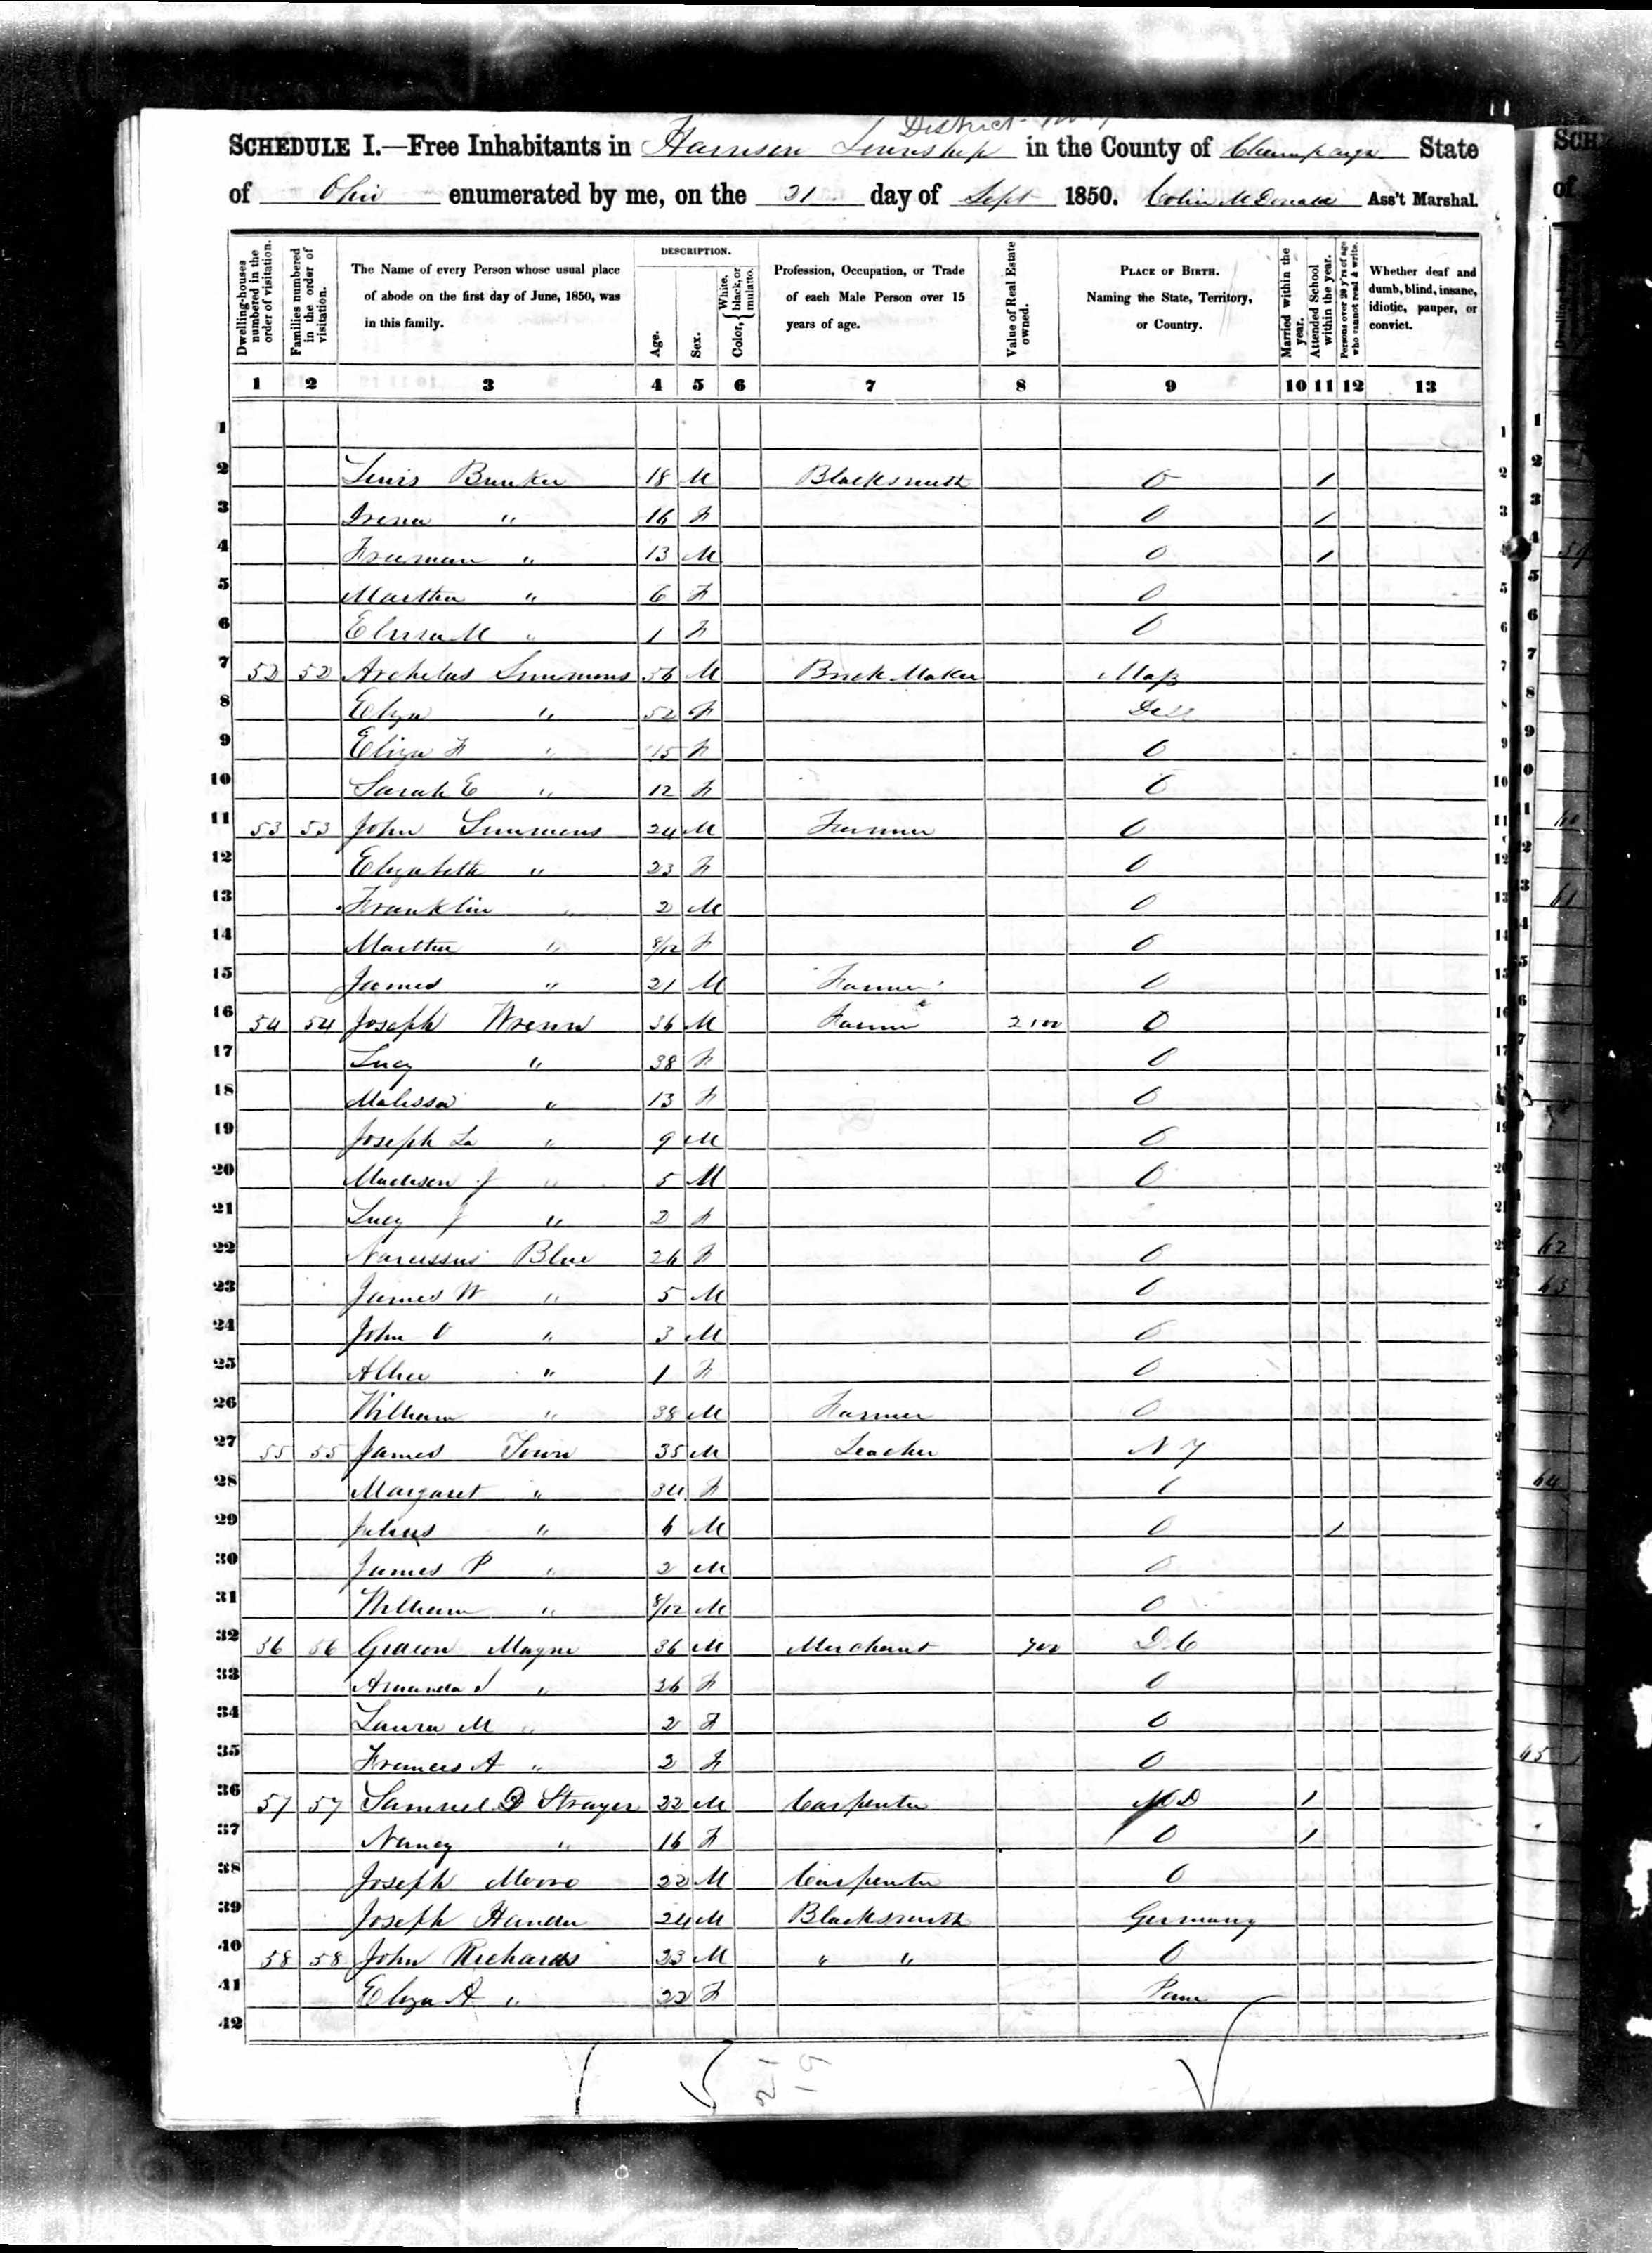 District
SCHEDULE I.—Free Inhabitants in Harrison Township in the County of Champaign State
of Ohio enumerated by me, on the 21 day of Sept 1850. Colin McDonald Ass't Marshal.
Dwelling-houses numbered in the order of visitation.
Families numbered in the order of visitation.
The Name of every Person whose usual place of abode on the first day of June, 1850, was in this family.
DESCRIPTION.
Age.
Sex.
Color, { White, black, or mulatto.
Profession, Occupation, or Trade of each Male Person over 15 years of age.
Value of Real Estate owned.
PLACE OF BIRTH. Naming the State, Territory, or Country.
Married within the year.
Attended School within the year.
Persons over 20 y'rs of age who cannot read & write.
Whether deaf and dumb, blind, insane, idiotic, pauper, or convict.
1 2 3 4 5 6 7 8 9 10 11 12 13
1 1
2 Lewis Bunker 18 M Blacksmith O 1 2
3 Irena " 16 F O 1 3
4 Freeman " 13 M O 1 4
5 Martha " 6 F O 5
6 M " 1 F O 6
7 52 52 Archelas Simmons 56 M Brick Maker Mass 7
8 Elza " 52 F Dell 8
9 Eliza F " 15 F O 9
10 Sarah E " 12 F O 10
11 53 53 John Simmons 24 M Farmer O 11
12 Elizabeth " 23 F O 12
13 Franklin " 2 M O 13
14 Martha " 8/12 F O 14
15 James " 21 M Farmer O 15
16 54 54 Joseph Wrenn 36 M Farmer 2100 O 16
17 Lucy " 38 F O 17
18 Malissa " 13 F O 18
19 Joseph La " 9 M O 19
20 Madison J " 5 M O 20
21 Lucy J " 2 F 21
22 Narcissus Blue 26 F O 22
23 James W " 5 M O
24 John V " 3 M O
25 " 1 F O
26 William " 38 M Farmer O
27 55 55 James Town 35 M Teacher N Y
28 Margaret " 34 F
29 Julius " 6 M O 1
30 James P " 2 M O
31 William " 8/12 M O
32 56 56 Gideon Magne 36 M Merchant 700 D C
33 Amanda J " 26 F O
34 Laura M " 2 F O
35 Frances A " 2 F O
36 57 57 Samuel D Strayer 22 M Carpenter MD 1
37 Nancy " 16 F O 1
38 Joseph Moore 22 M Carpenter O
39 Joseph 24 M Blacksmith Germany
40 58 58 John Richards 23 M " " O
41 Eliza A " 22 F Penn
42
21
19